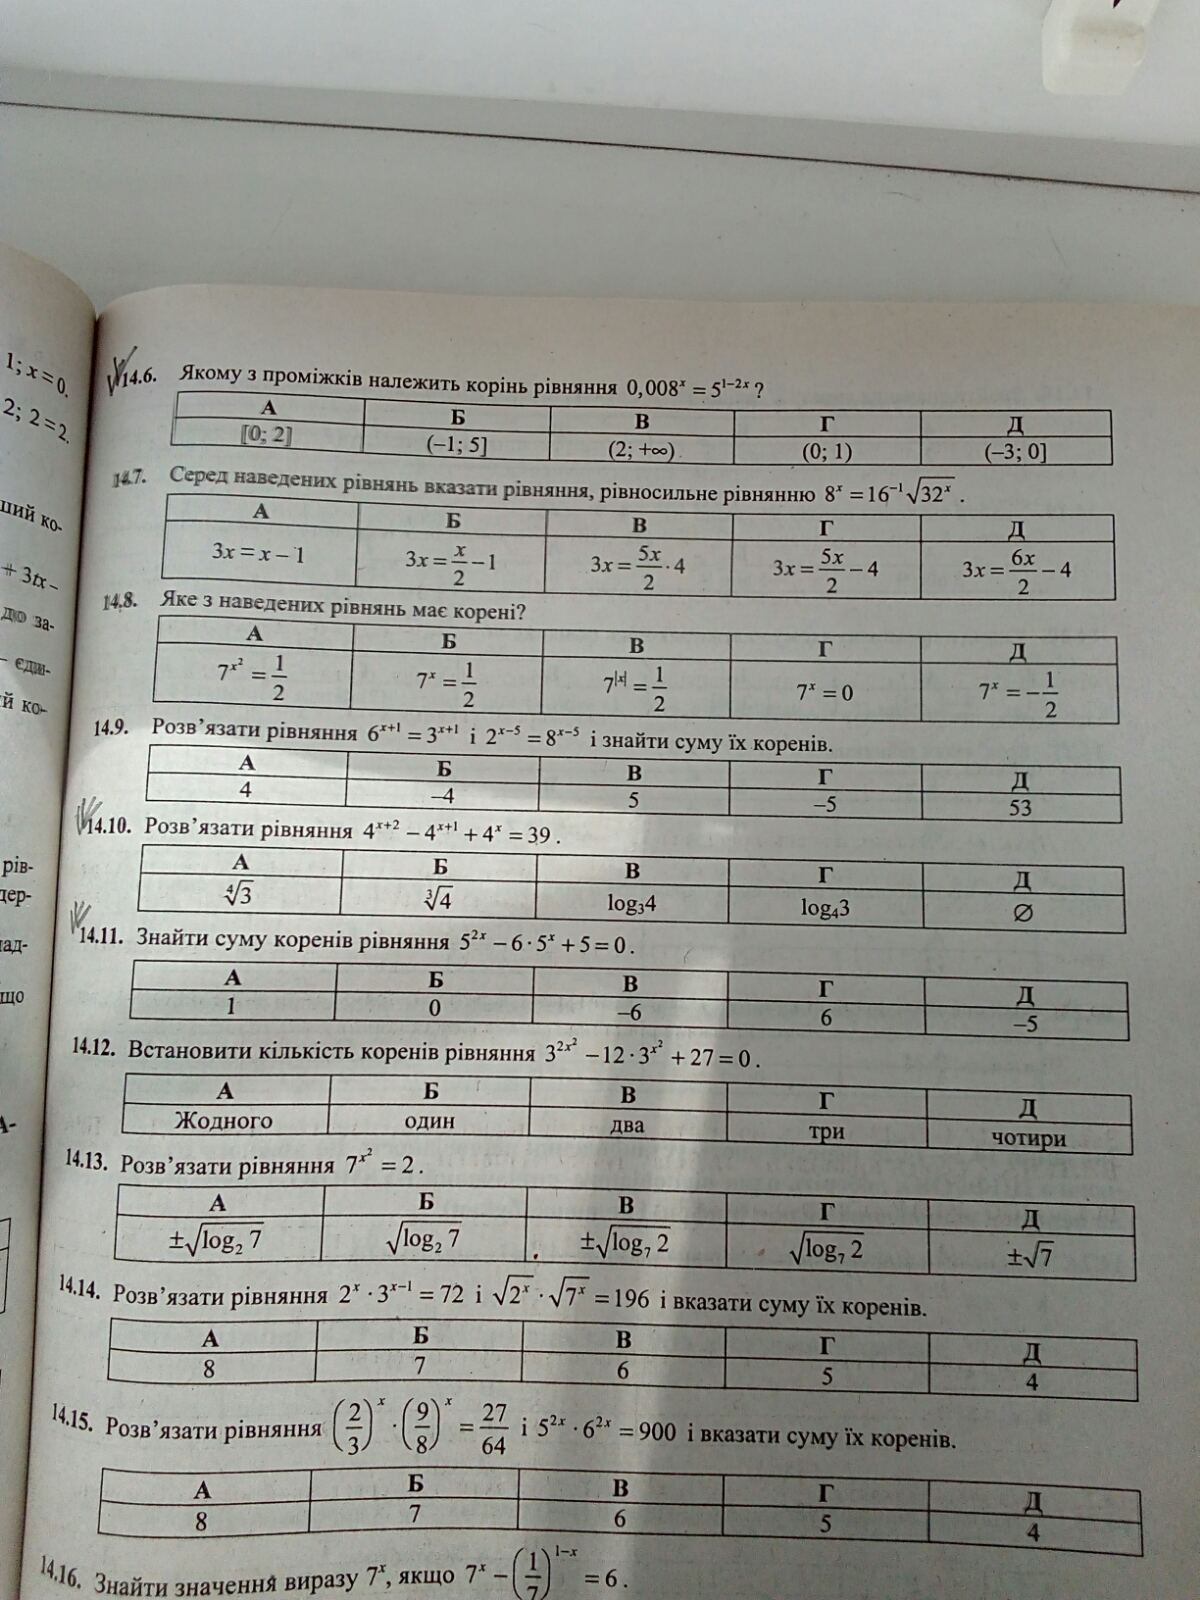 1; x = 0.
2; 2 = 2.
ший ко-
+ 3tx –
за-
– єди-
й ко-
рів-
дер-
що
14.6. Якому з проміжків належить корінь рівняння 0,008^x = 5^(1–2x) ?
А Б В Г Д
[0; 2] (–1; 5] (2; +∞) (0; 1) (–3; 0]
14.7. Серед наведених рівнянь вказати рівняння, рівносильне рівнянню 8^x = 16^(–1)√(32^x) .
А Б В Г Д
3x = x – 1 3x = x/2 – 1 3x = 5x/2 · 4 3x = 5x/2 – 4 3x = 6x/2 – 4
14.8. Яке з наведених рівнянь має корені?
А Б В Г Д
7^(x²) = 1/2 7^x = 1/2 7^|x| = 1/2 7^x = 0 7^x = –1/2
14.9. Розв’язати рівняння 6^(x+1) = 3^(x+1) і 2^(x–5) = 8^(x–5) і знайти суму їх коренів.
А Б В Г Д
4 –4 5 –5 53
14.10. Розв’язати рівняння 4^(x+2) – 4^(x+1) + 4^x = 39 .
А Б В Г Д
∜3 ∛4 log₃4 log₄3 ∅
14.11. Знайти суму коренів рівняння 5^(2x) – 6 · 5^x + 5 = 0 .
А Б В Г Д
1 0 –6 6 –5
14.12. Встановити кількість коренів рівняння 3^(2x²) – 12 · 3^(x²) + 27 = 0 .
А Б В Г Д
Жодного один два три чотири
14.13. Розв’язати рівняння 7^(x²) = 2 .
А Б В Г Д
±√(log₂ 7) √(log₂ 7) ±√(log₇ 2) √(log₇ 2) ±√7
14.14. Розв’язати рівняння 2^x · 3^(x–1) = 72 і √(2^x) · √(7^x) = 196 і вказати суму їх коренів.
А Б В Г Д
8 7 6 5 4
14.15. Розв’язати рівняння (2/3)^x · (9/8)^x = 27/64 і 5^(2x) · 6^(2x) = 900 і вказати суму їх коренів.
А Б В Г Д
8 7 6 5 4
14.16. Знайти значення виразу 7^x, якщо 7^x – (1/7)^(1–x) = 6 .